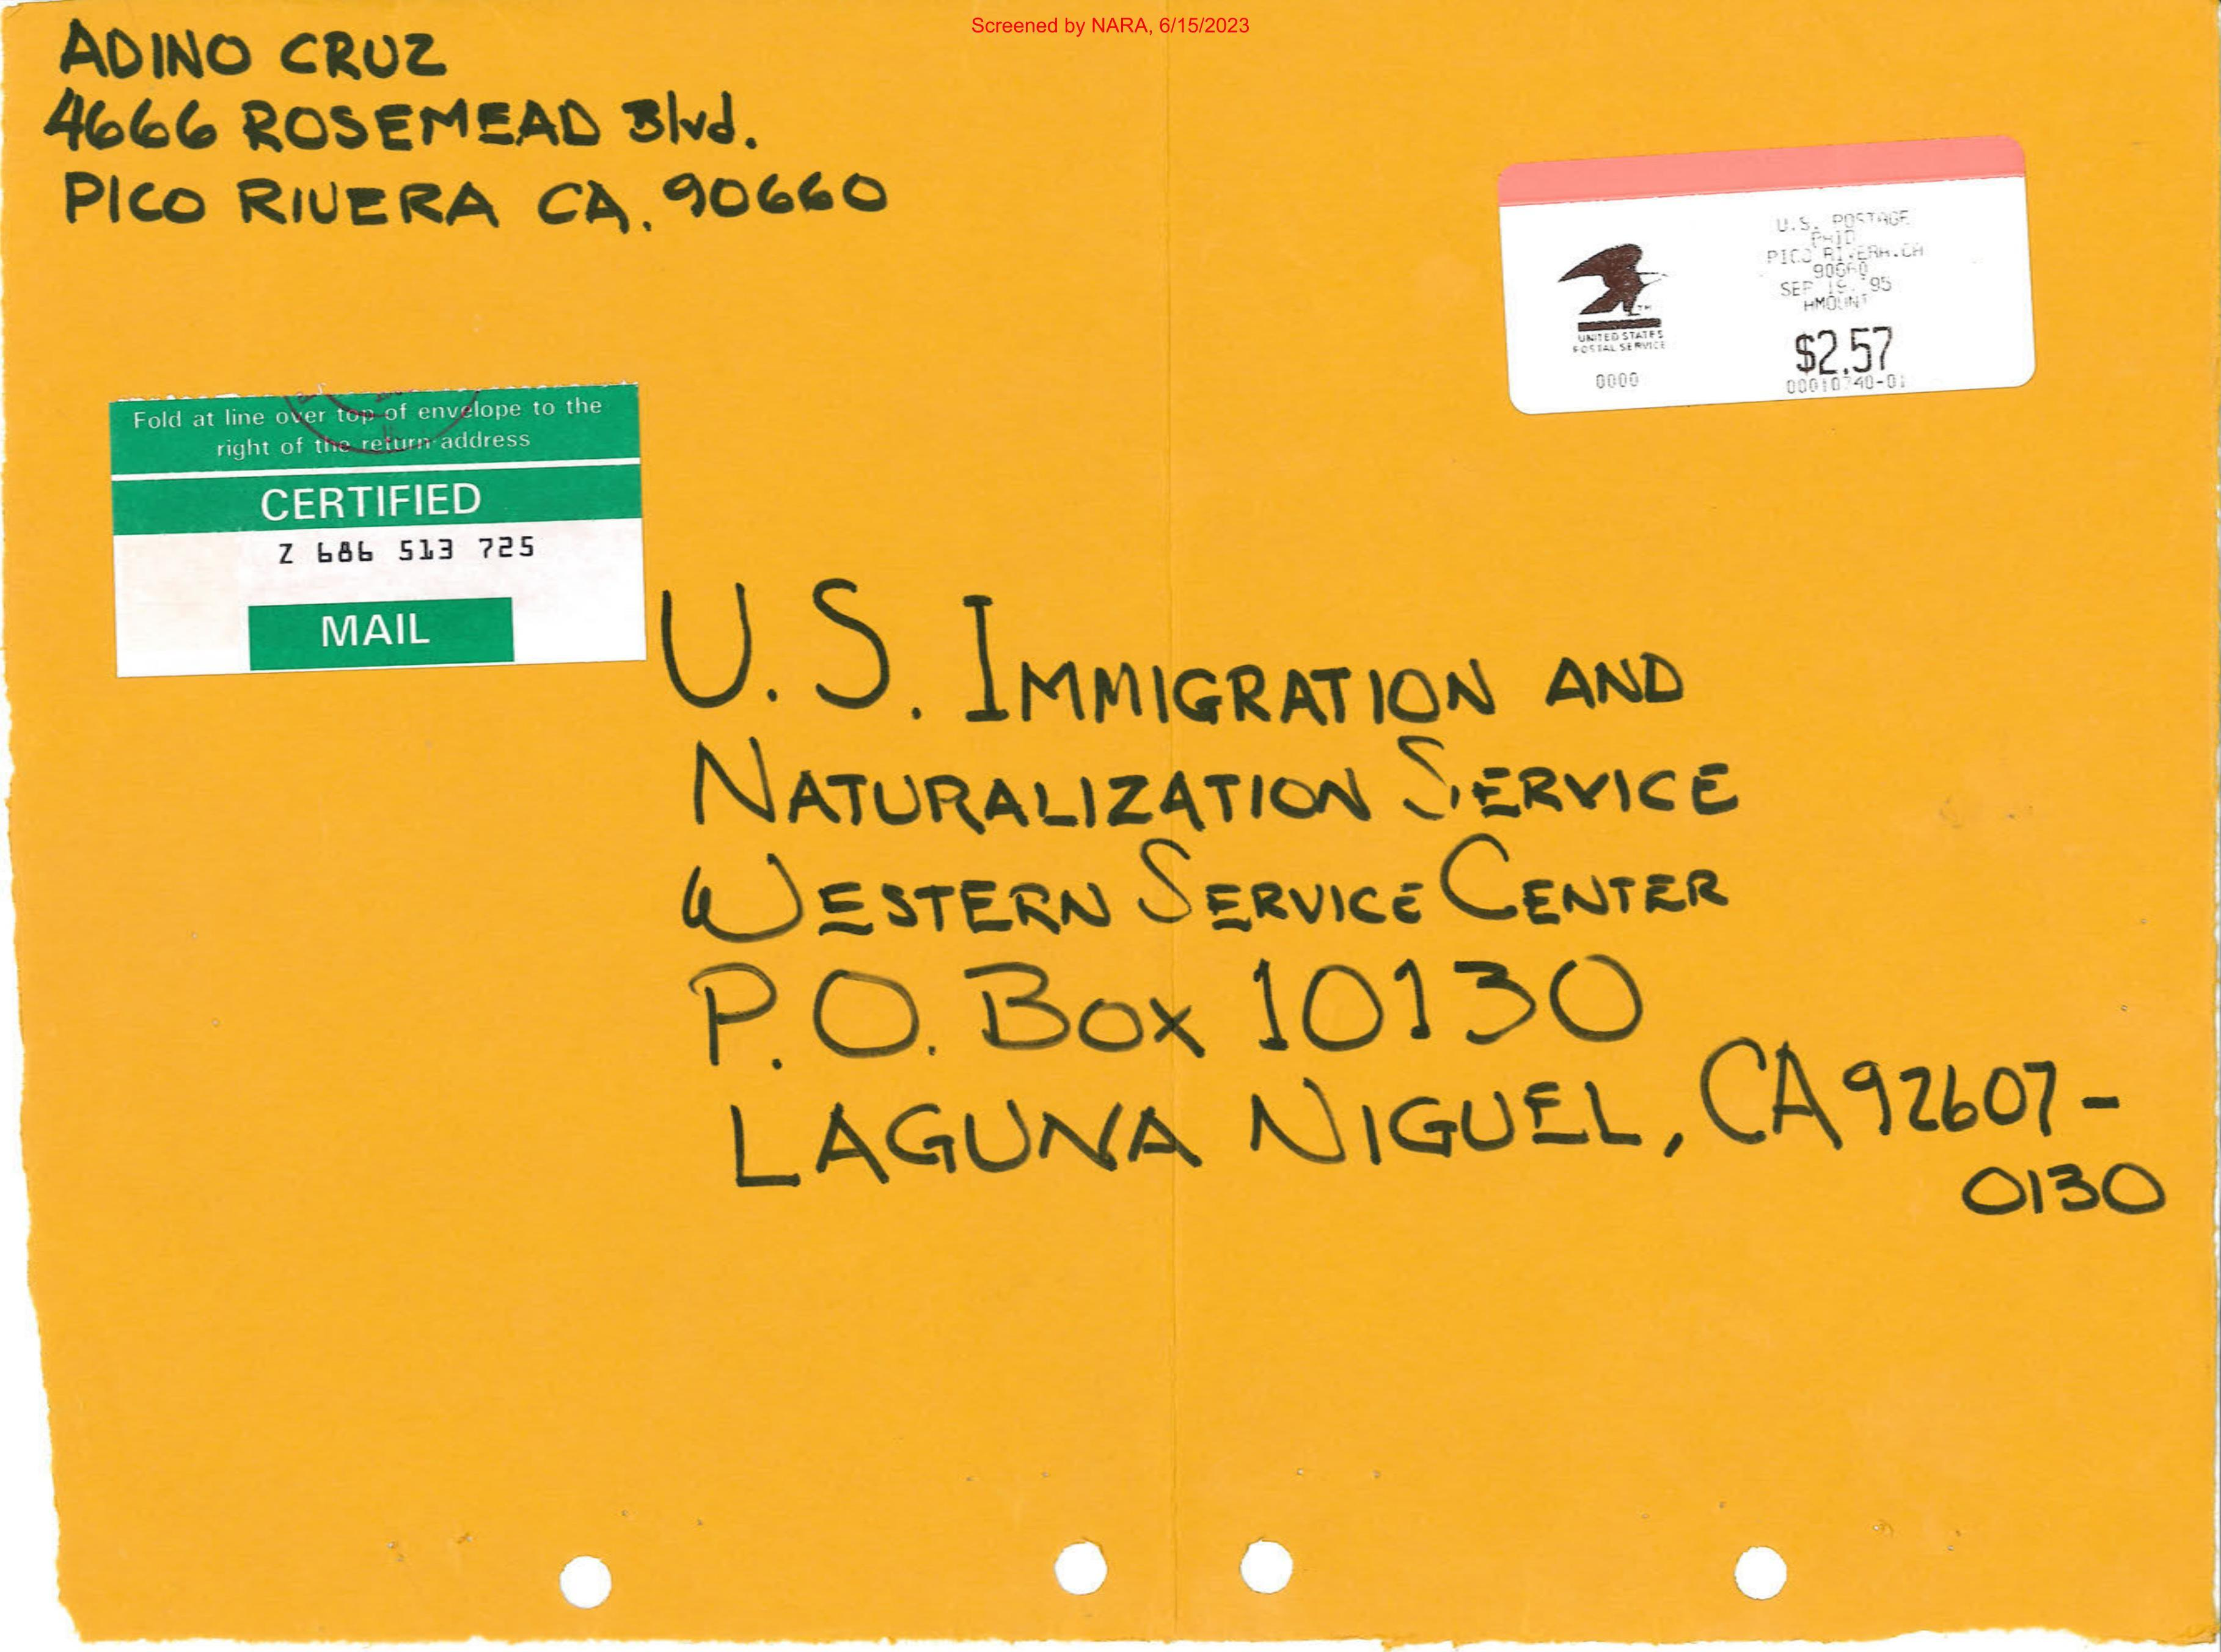 Screened by NARA, 6/15/2023
ADINO CRUZ
4666 ROSEMEAD Blvd.
PICO RIVERA CA. 90660
U.S. POSTAGE
PAID
PICO RIVERA.CA
90660
SEP 19. '95
AMOUNT
$2.57
00010740-01
UNITED STATES
POSTAL SERVICE
0000
Fold at line over top of envelope to the
right of the return address
CERTIFIED
Z 686 513 725
MAIL
U.S. IMMIGRATION AND
NATURALIZATION SERVICE
WESTERN SERVICE CENTER
P.O. Box 10130
LAGUNA NIGUEL, CA 92607-
0130